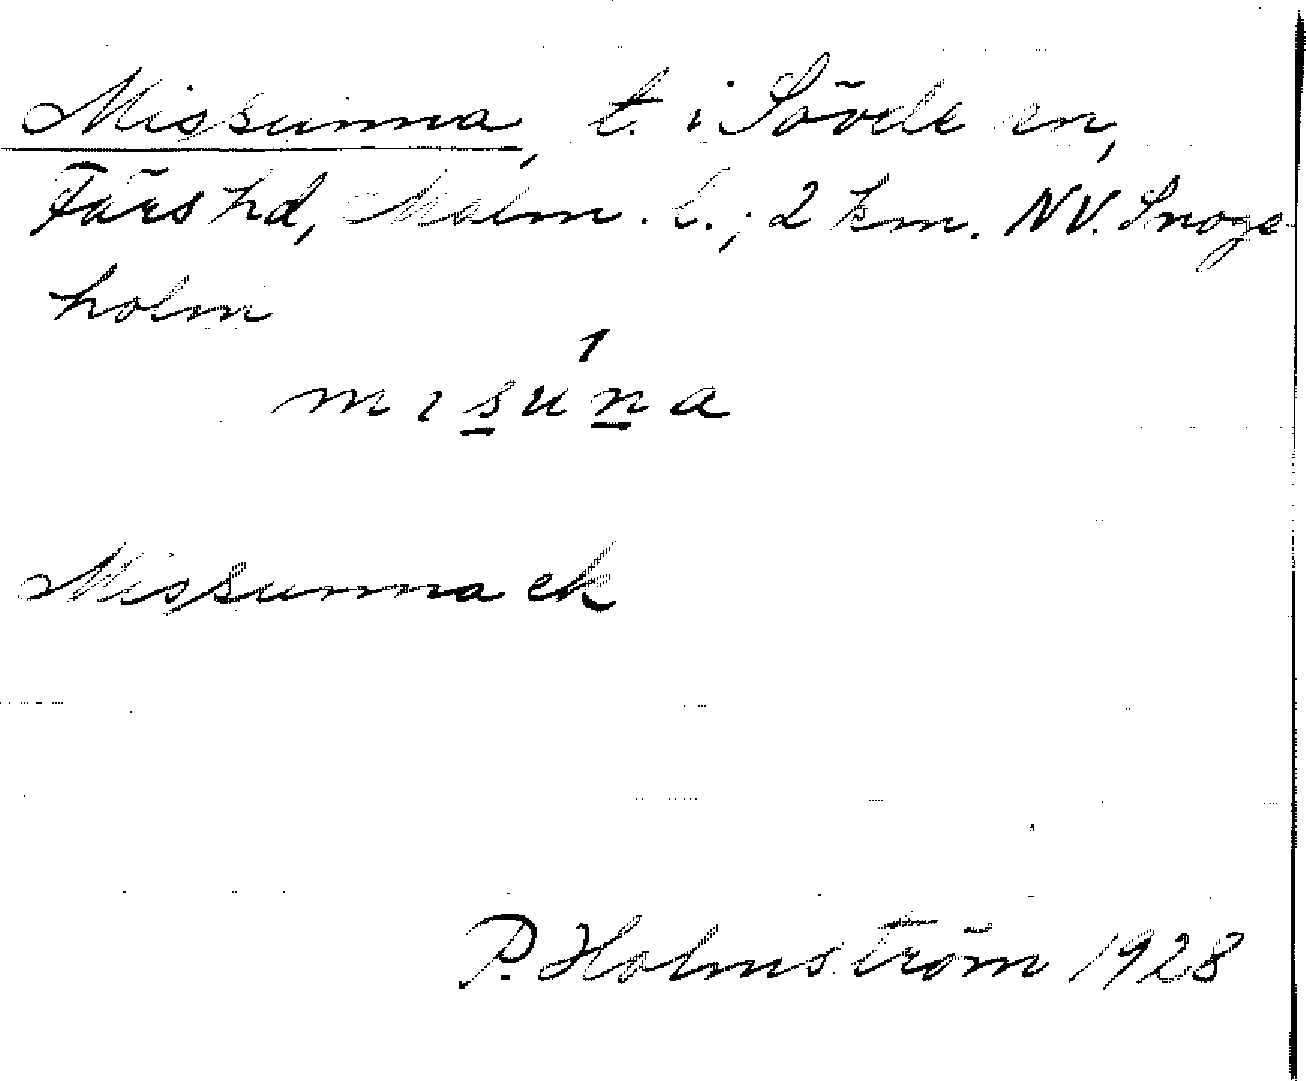 Missunna, t. i Sövde sn,
Färs hd, Malm. l.; 2 km. NV. Snoge-
holm
mısu̍na
Missunna ek
P. Holmström 1928